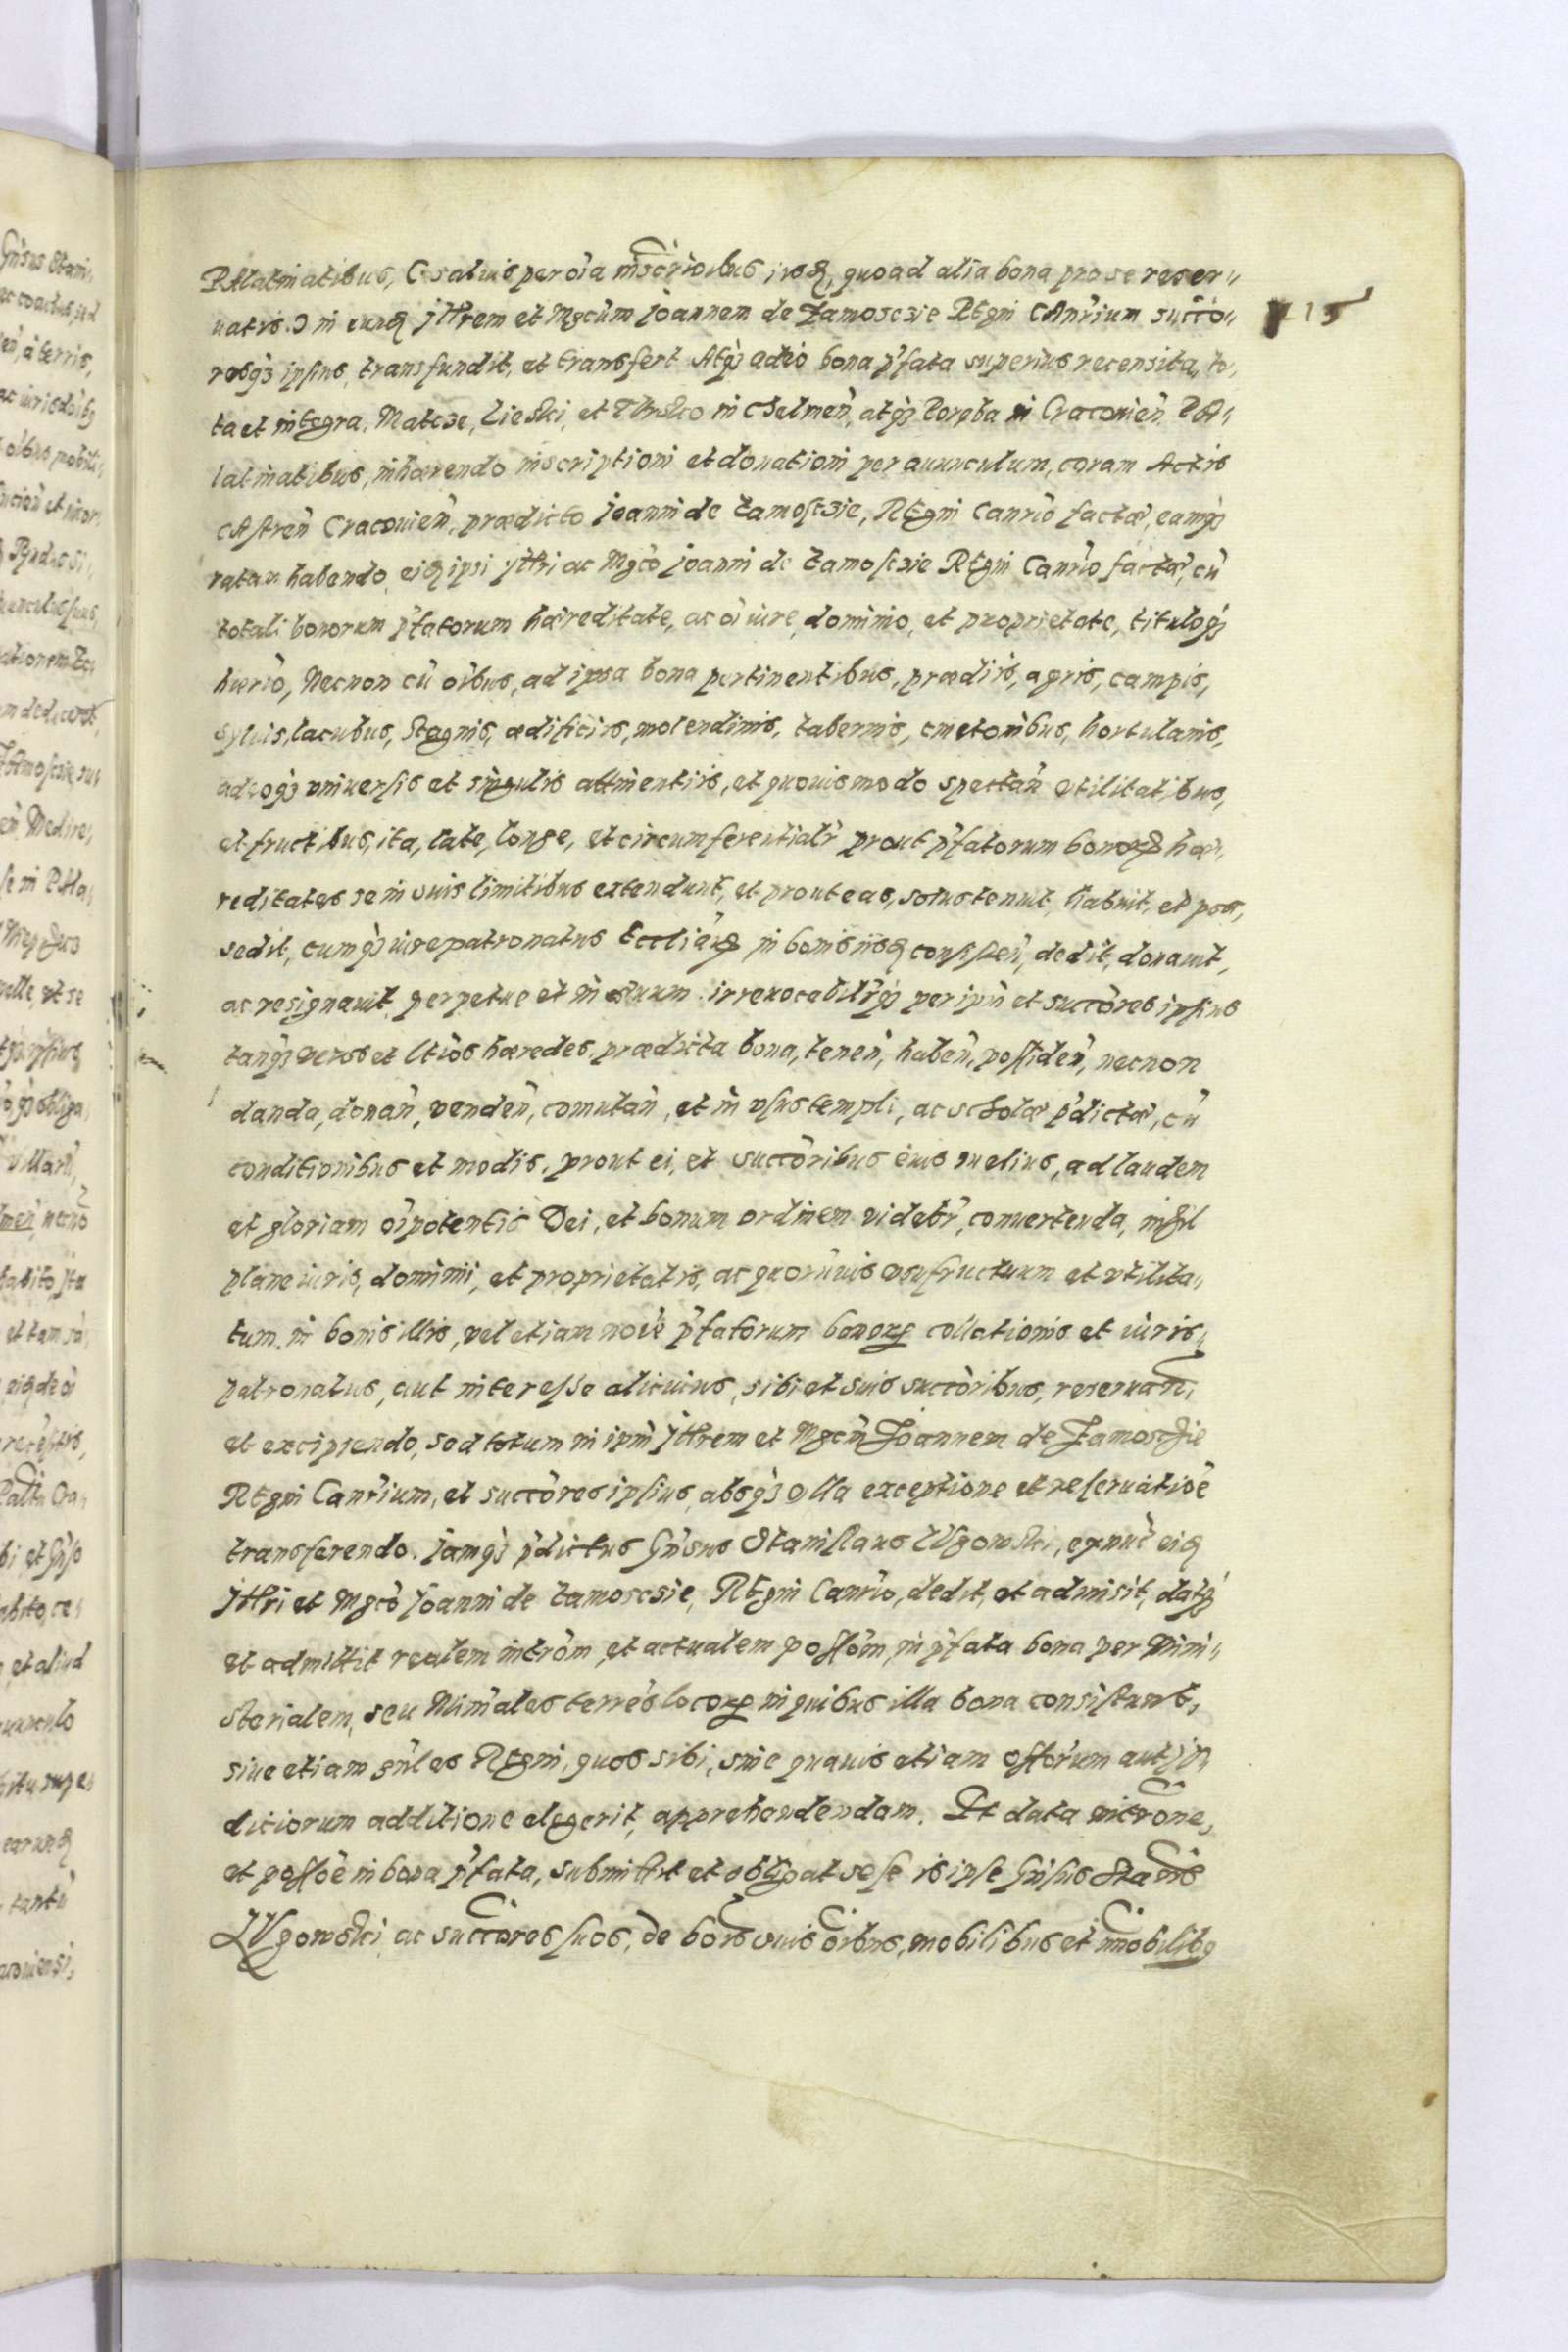 Palatinatibus, C salvis per oĩa inscriõibus ipsꝫ, quoad alia bona pro se reser„
115
uatis Ɔ in eundꝫ Jllrem et Mgcũm Joannem de Zamosczie Regni CAnr̃ium succõ„
resqꝫ ipsius, transfundit, et transfert Atqꝫ adeò bona p̃fata superius recensita, to,
ta et integra, Matcze, Lieski, et in Chelmeñ, atqꝫ Poręba in Cracouieñ PA„
latinatibus, inhærendo inscriptioni et donationi per auunculum, coram Actis
CAstreñ Cracouieñ, prædicto Joanni de Zamosczie, REgni Canr̃io factæ, eamqꝫ
ratam habendo, eidꝫ ipsi Jllri ac Mgcõ Joanni de Zamosczie REgni Canr̃io factæ, cũ
totali bonorum p̃fatorum hæreditate, ac oĩ iure, dominio, et proprietate, tituloqꝫ
hærio, Necnon cũ oĩbus, ad ipsa bona pertinentibus, prædiis, agris, campis,
syluis, lacubus, stagnis, ædificiis, molendinis, tabernis, cmetonibus, hortulanis,
adeoqꝫ vniuersis et singulis attinentiis, et quouismodo spectañ vtilitatibus,
et fructibus, ita, late, longe, et circumferentialr̃ prout p̃fatorum bonorꝝ hæ„
reditates se in suis limitibus extendunt, et prout eas, solus tenuit, habuit, et pos,
sedit, cumqꝫ iure patronatus Eccliãrꝝ in bonis iisdꝫ consisteñ, dedit, donauit,
ac resignauit perpetue et in æuum irreuocabilr̃qꝫ per ipm̃ et succõres ipsius
tanqꝫ veros et ltĩos hæredes prædicta bona, teneñ, habeñ, possideñ, necnon
danda, donañ, vendeñ, comutañ, et in vsus templi, ac scholæ p̃dictæ, cũ
conditionibus et modis, prout ei, et succõribus eius melius, ad laudem
et gloriam oĩpotentis Dei, et bonum ordinem videbr̃, conuertenda, nihil
plane iuris, dominii, et proprietatis, ac quorũuis vsufructuum et vtilita„
tum in bonis illis, vel etiam noĩe p̃fatorum bonorꝝ collationis et iuris„
patronatus, aut interesse alicuius, sibi et suis succõribus, reseruañ,
et excipiendo, sed totum in ipm̃ Jllrem et Mgcũ Joannem de Zamosczie
REgni Canr̃ium, et succõres ipsius, absqꝫ vlla exceptione et reseruatiõe
transferendo. Jamqꝫ p̃dictus Gñsus Stanislaus Wgowski, exnũc eidꝫ
Jllri et Mgcõ Joanni de Zamosczie, REgni Canr̃io, dedit, et admisit, datqꝫ
et admittit realem intrõm, et actualem possõm, in p̃fata bona per Mini„
sterialem, seu Minãles terrẽs locorꝝ in quibus illa bona consistunt,
siue etiam gñles REgni, quos sibi, sine quauis etiam offõrum aut ju
diciorum additione elegerit, apprehendendam. Et data intrõne,
et possõe in bona p̃fata, submittit et obligat sese is ipse Gñsus Stanis
Wgowski, ac succõres suos, de bonis suis oĩbus, mobilibus et immobilibꝫ